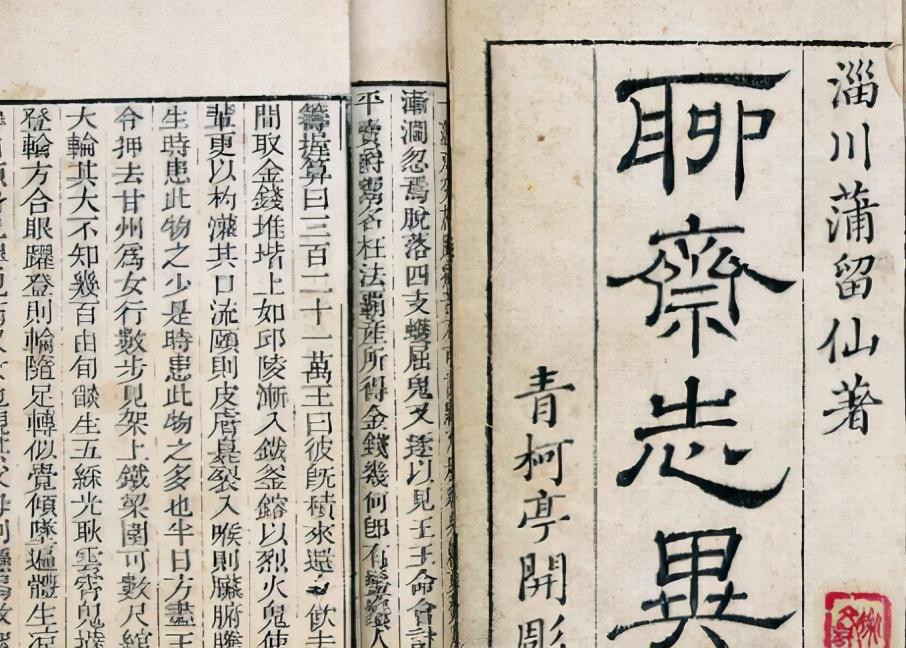 淄川蒲留仙著
聊齋志異
青柯亭開彫
漸凋忽焉脫落四支蠖屈鬼又逐以見王王命會計
平賣爵鬻名枉法霸產所得金錢幾何即有人
籌握算曰三百二十一萬王曰彼既積來還飲去
間取金錢堆堦上如邱陵漸入鐵釜鎔以烈火鬼使
輩更以杓灌其口流頤則皮膚臭裂入喉則臟腑騰
生時患此物之少是時患此物之多也半日方盡王
令押去甘州爲女行數步見架上鐵梁圍可數尺綰
大輪其大不知幾百由旬燄生五綵光耿雲霄鬼撻
登輪方合眼躍登則輪隨足轉似覺傾墜遍體生涼